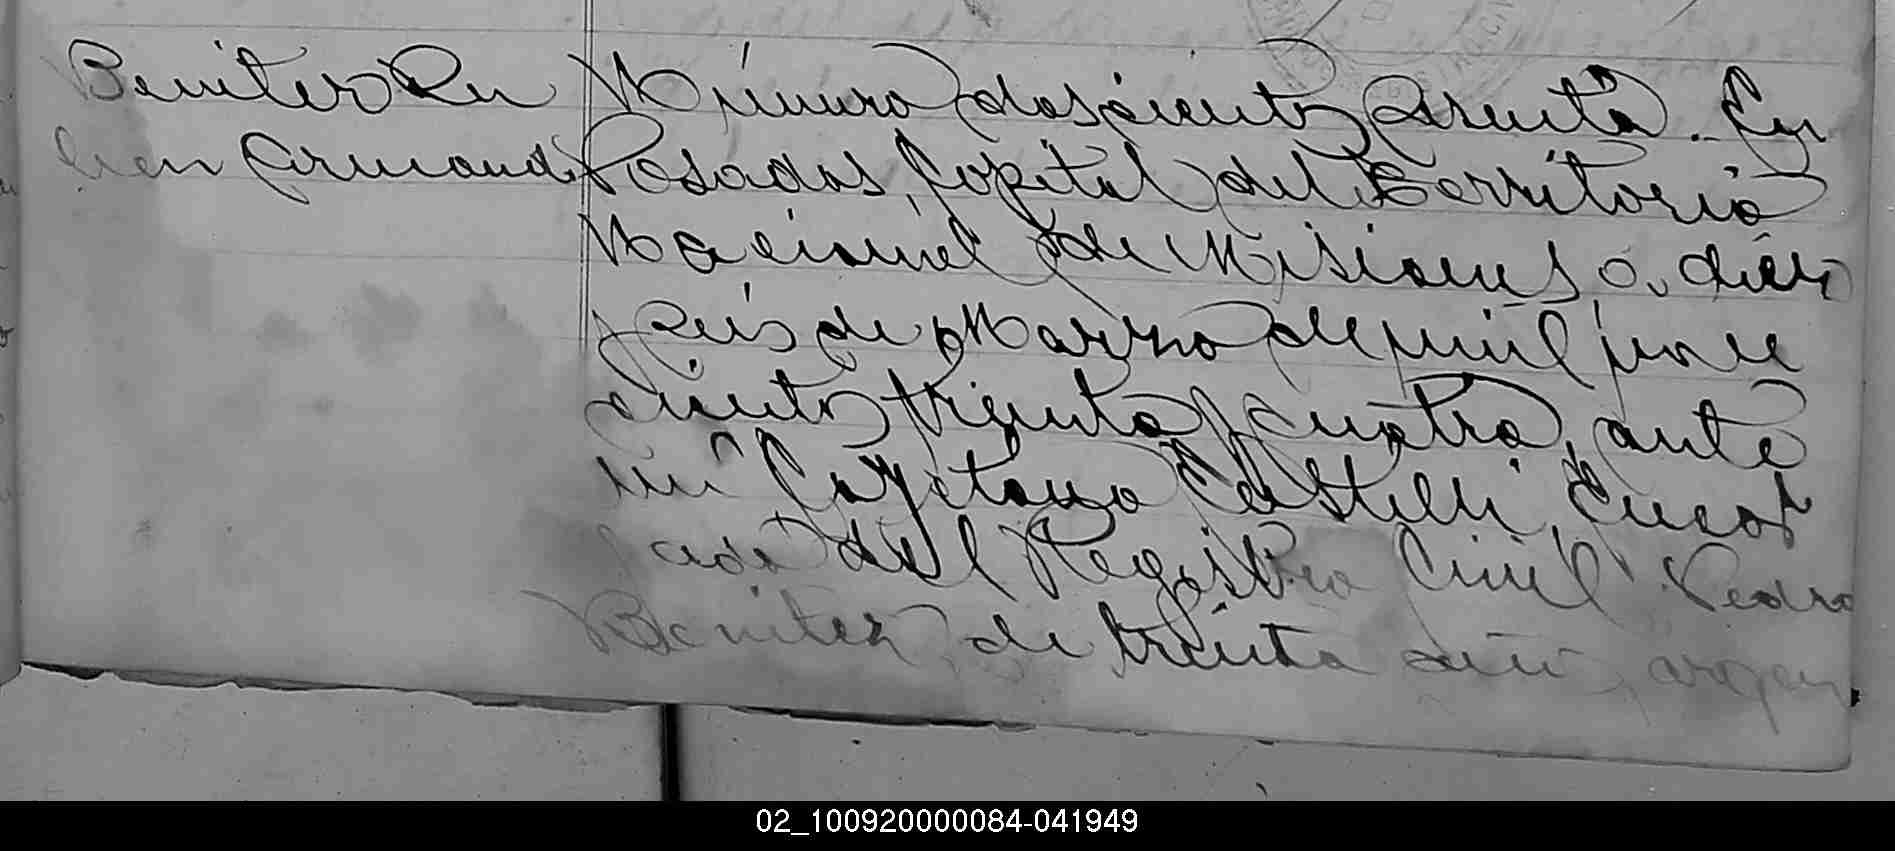 Benitez Ru
ben Armando
Número doscientos setenta. En
Posadas, Capital del Territorio
Nacional de Misiones á diez
seis de Marzo de mil nove
cientos treinta y cuatro, ante
mi Cayetano Castelli, Encar
gado del Registro Civil Pedro
Benitez, de treinta años, argen
02_100920000084-041949